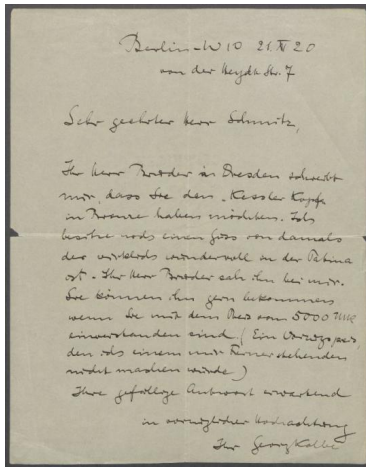 Berlin-W 10 21.XI 20
von der Heydt Str. 7
Sehr geehrter Herr Schmitz,
Ihr Herr Bruder in Dresden schreibt
mir, dass Sie den "Kessler Kopf"
in Bronze haben möchten. Ich
besitze noch einen Guss von damals
der wirklich wundervoll in der Patina
ist. Ihr Herr Bruder sah ihn bei mir.
Sie können ihn gern bekommen
wenn Sie mit dem Preis von 5000 Mk
einverstanden sind (Ein Vorzugspreis,
den ich einem mir Fernerstehenden
nicht machen würde)
Ihre gefällige Antwort erwartend
in vorzüglicher Hochachtung
Ihr Georg Kolbe